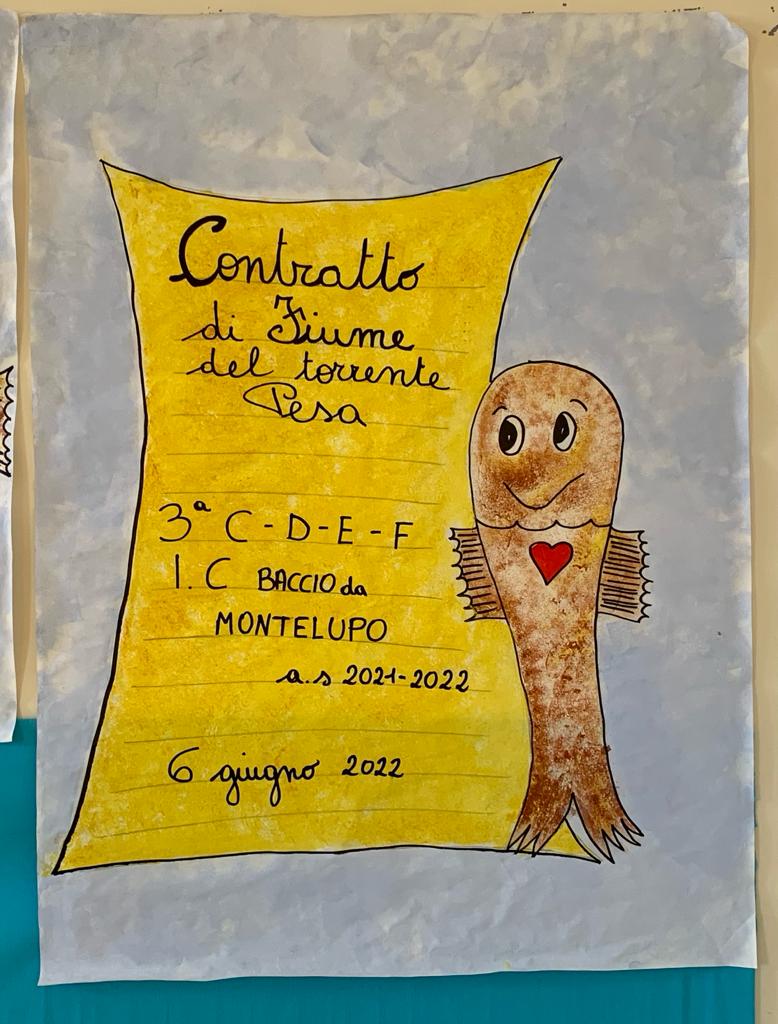 Contratto
di Fiume
del torrente
Pesa
3ª C - D - E - F
I. C BACCIO da
MONTELUPO
a.s 2021-2022
6 giugno 2022